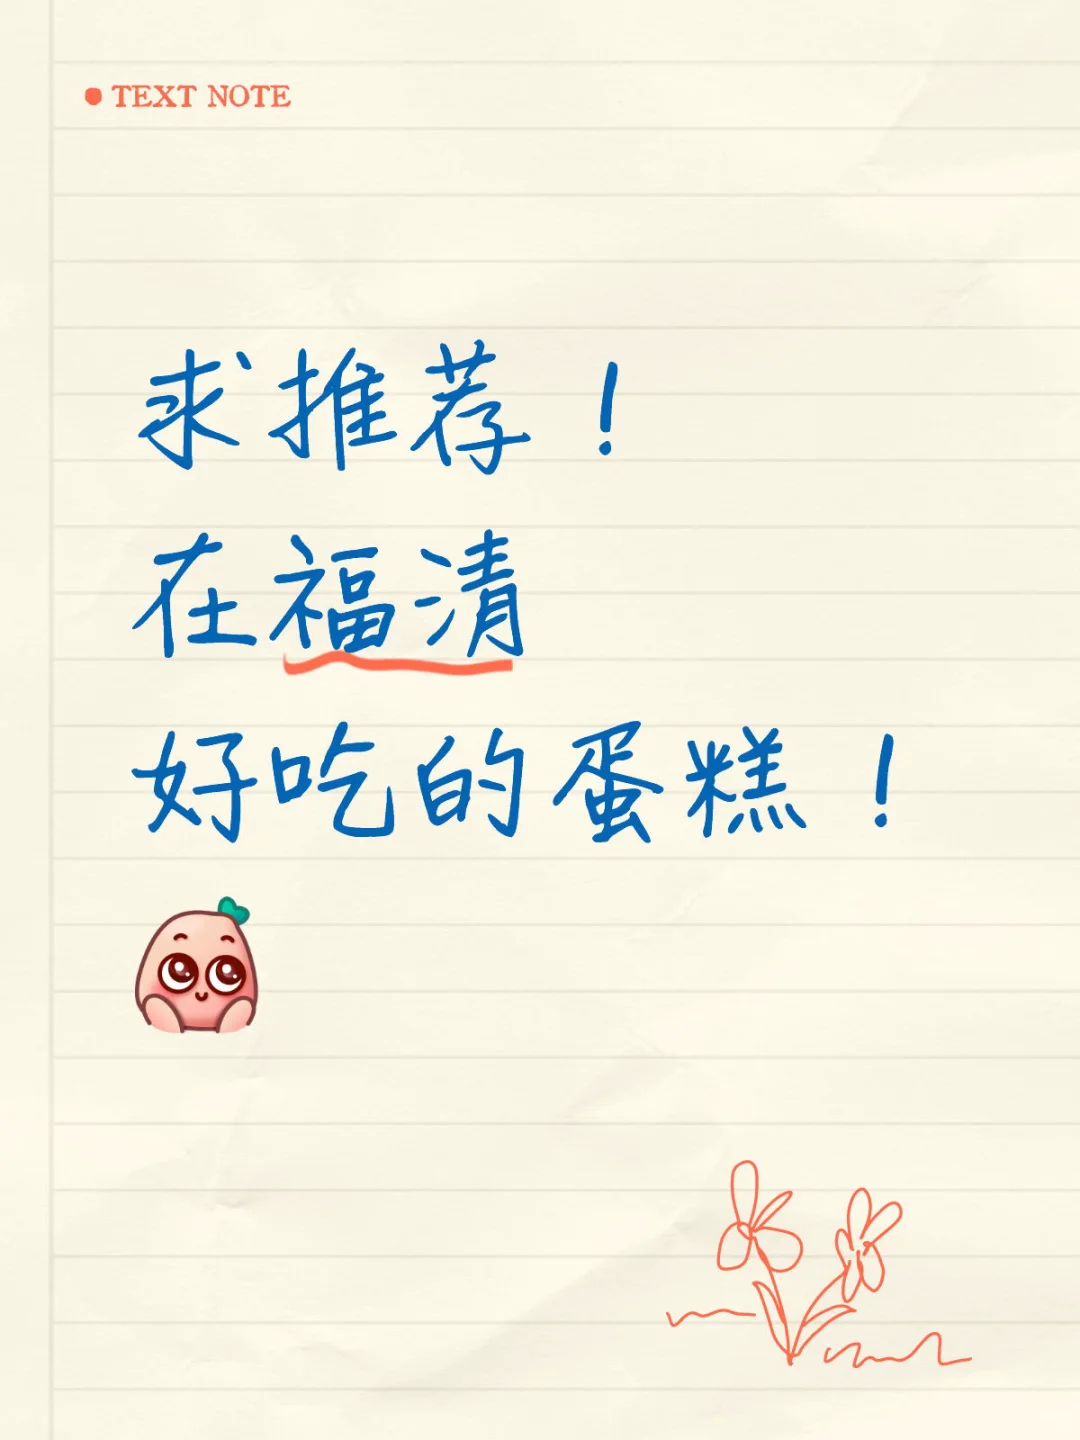 TEXT NOTE
求推荐！
在福清
好吃的蛋糕！